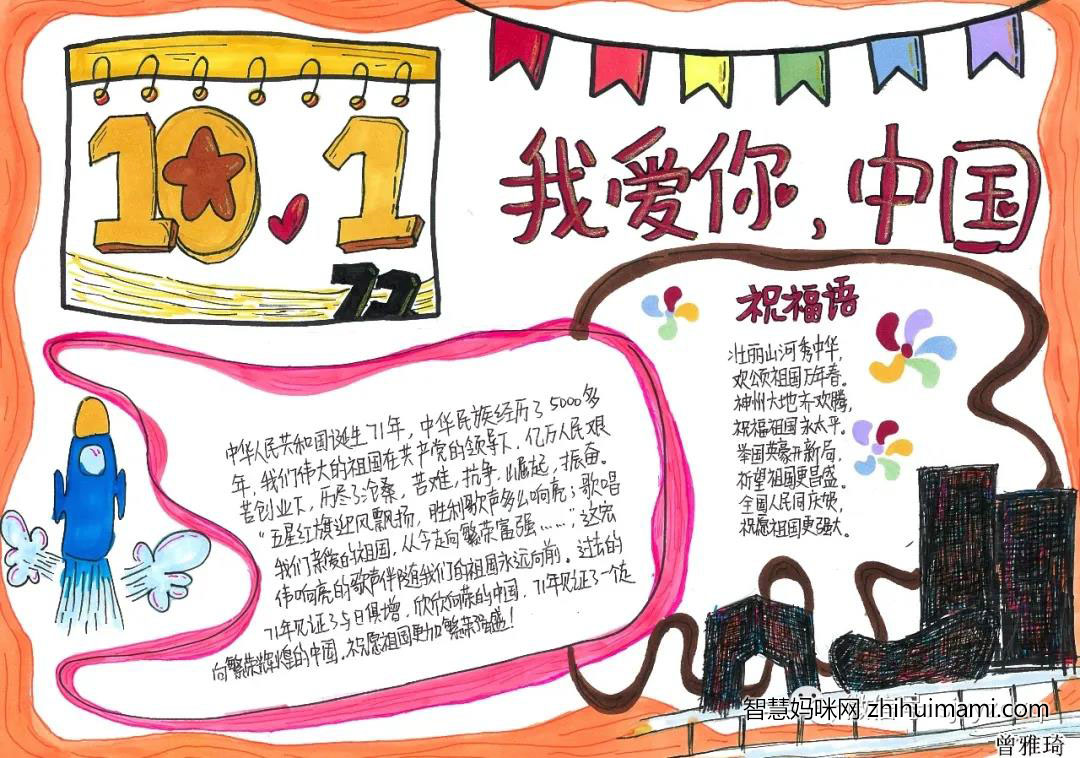 10.1
72
我爱你，中国
祝福语
壮丽山河秀中华，
欢颂祖国万年春。
神州大地齐欢腾，
祝福祖国永太平。
举国英豪开新局，
祈望祖国更昌盛。
全国人民同庆贺，
祝愿祖国更强大。
中华人民共和国诞生71年，中华民族经历了5000多
年，我们伟大的祖国在共产党的领导下，亿万人民艰
苦创业下，历尽了沧桑，苦难，抗争，崛起，振奋。
“五星红旗迎风飘扬，胜利歌声多么响亮；歌唱
我们亲爱的祖国，从今走向繁荣富强……”，这宏
伟响亮的歌声伴随我们的祖国永远向前。过去的
71年见证了与日俱增，欣欣向荣的中国，71年见证了一个走
向繁荣辉煌的中国。祝愿祖国更加繁荣强盛！
智慧妈咪网 zhihuimami.com
曾雅琦